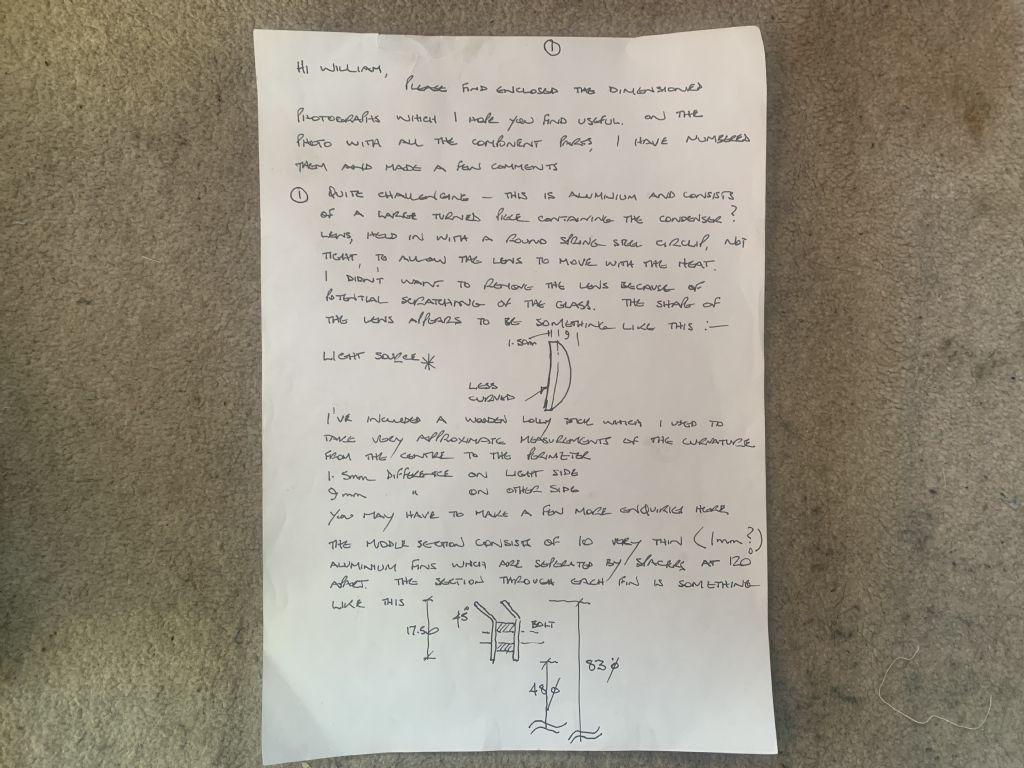 1
HI WILLIAM,
PLEASE FIND ENCLOSED THE DIMENSIONED
PHOTOGRAPHS WHICH I HOPE YOU FIND USEFUL. ON THE
PHOTO WITH ALL THE COMPONENT PARTS, I HAVE NUMBERED
THEM AND MADE A FEW COMMENTS
1 QUITE CHALLENGING – THIS IS ALUMINIUM AND CONSISTS
OF A LARGE TURNED PIECE CONTAINING THE CONDENSER?
LENS, HELD IN WITH A ROUND SPRING STEEL CIRCLIP, NOT
TIGHT, TO ALLOW THE LENS TO MOVE WITH THE HEAT.
I DIDN'T WANT TO REMOVE THE LENS BECAUSE OF
POTENTIAL SCRATCHING OF THE GLASS. THE SHAPE OF
THE LENS APPEARS TO BE SOMETHING LIKE THIS :—
1.5mm 9
LIGHT SOURCE *
LESS
CURVED
I'VE INCLUDED A WOODEN LOLLY STICK WHICH I USED TO
TAKE VERY APPROXIMATE MEASUREMENTS OF THE CURVATURE
FROM THE CENTRE TO THE PERIMETER
1.5mm DIFFERENCE ON LIGHT SIDE
9mm " ON OTHER SIDE
YOU MAY HAVE TO MAKE A FEW MORE ENQUIRIES HERE
THE MIDDLE SECTION CONSISTS OF 10 VERY THIN (1mm?)
ALUMINIUM FINS WHICH ARE SEPERATED BY SPACERS AT 120°
APART. THE SECTION THROUGH EACH FIN IS SOMETHING
LIKE THIS
45°
17.50
BOLT
83 ø
48 ø